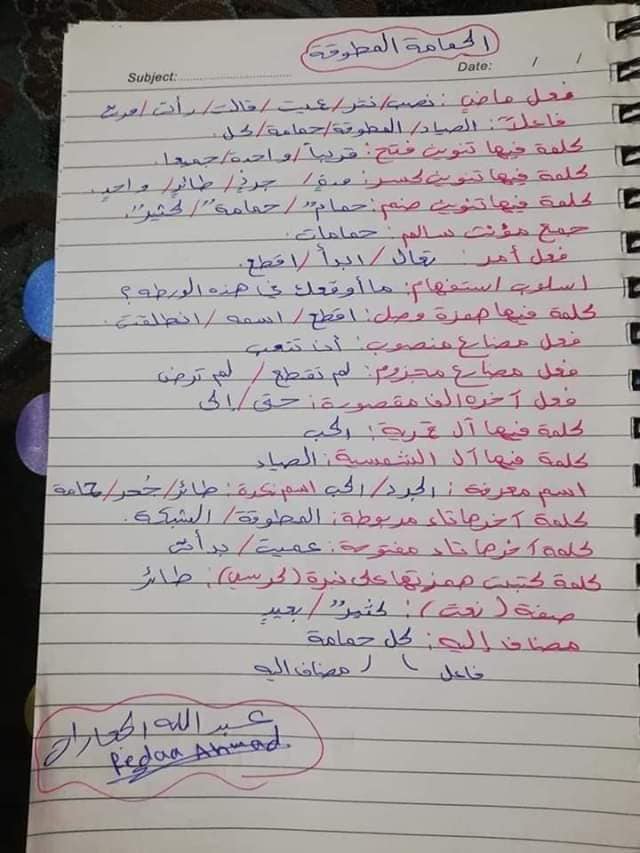 الحمامة المطوقة
Subject: Date: / /
فعل ماضي: نصب/نثر/عميت/قالت/رأت/فرح
فاعل: الصياد/المطوقة/حمامة/كل
كلمة فيها تنوين فتح: قريباً/واحدة/جميعا.
كلمة فيها تنوين كسر: مدةٍ/ جرذٍ/ طائرٍ/ واحدٍ.
كلمة فيها تنوين ضم: حمامٌ/ حمامةٌ/ كثيرٌ.
جمع مؤنث سالم: حمامات.
فعل أمر: تعال/ ابدأ/ اقطع.
اسلوب استفهام: ما أوقعك في هذه الورطه؟
كلمة فيها همزة وصل: اقطع/ اسمه/ انطلقت.
فعل مضارع منصوب: أن تتعب
فعل مضارع مجزوم: لم تقطع/ لم ترض
فعل آخره الف مقصورة: حتى/ إلى
كلمة فيها آل قمرية: الحب
كلمة فيها آل الشمسية: الصياد
اسم معرفة: الجرذ/ الحب اسم نكرة: طائر/ جُحر/ حمامة
كلمة آخرها تاء مربوطة: المطوقة/ الشبكة.
كلمه آخرها تاء مفتوحة: عميت/ بدأت
كلمة كتبت همزتها على نبرة (كرسي): طائر
صفة (نعت): كثيرٌ/ بعيدٍ
مضاف إليه: كل حمامة
فاعل / مضاف اليه
عبد الله
Redaa Ahmad